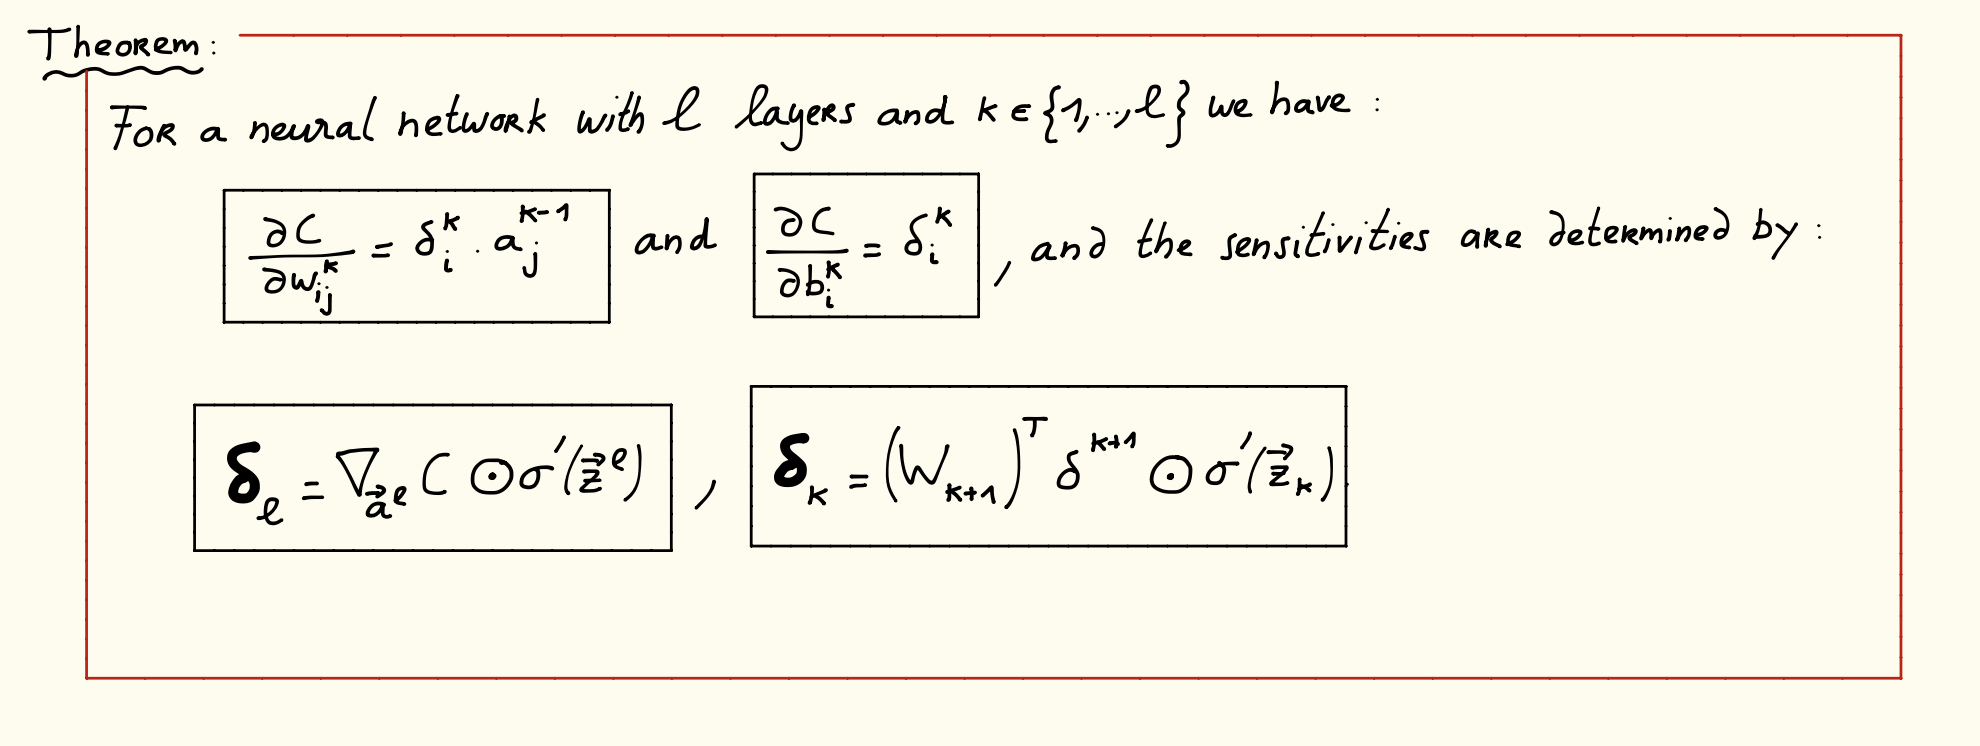 Theorem:
For a neural network with ℓ layers and k ∈ {1,...,ℓ} we have :
∂C/∂w_{ij}^k = δ_i^k · a_j^{k-1} and ∂C/∂b_i^k = δ_i^k , and the sensitivities are determined by :
δ_ℓ = ∇_{\vec{a}^ℓ} C ⊙ σ'(\vec{z}^ℓ) , δ_k = (W_{k+1})^T δ^{k+1} ⊙ σ'(\vec{z}_k)